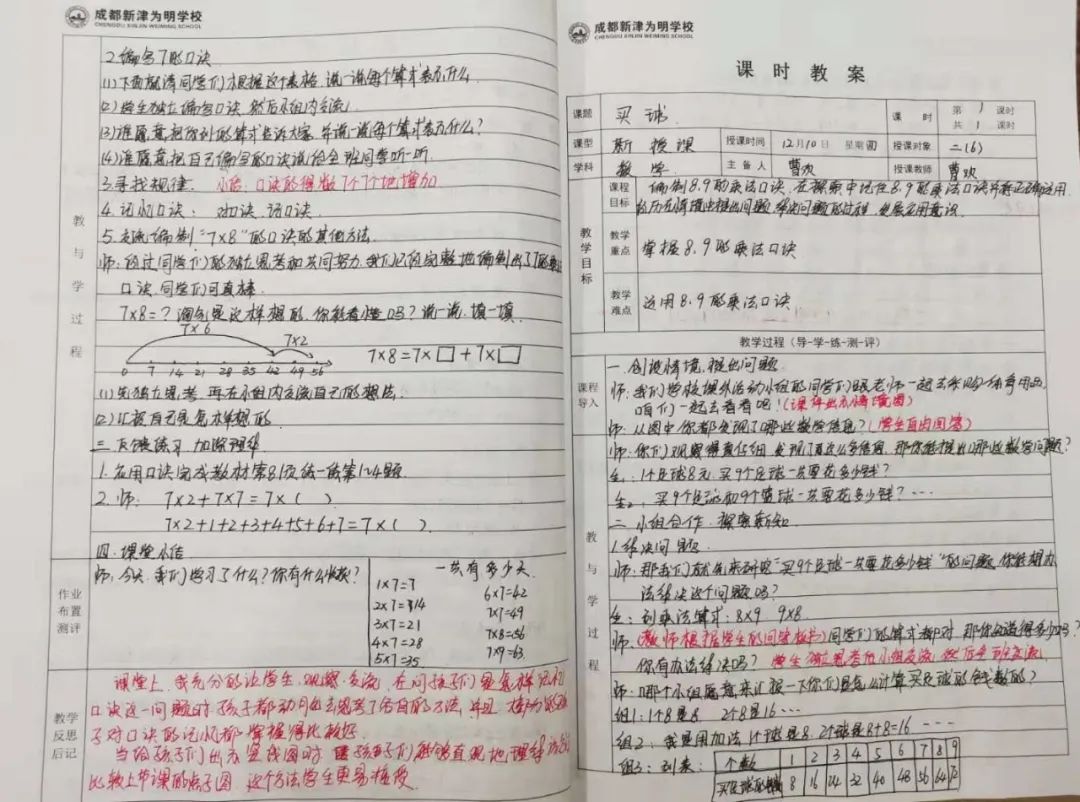 成都新津为明学校
CHENGDU XINJIN WEIMING SCHOOL
教与学过程
2.编写7的口诀
(1)下面就请同学们根据这个表格,说一说每个算式表示什么.
(2)学生独立编写口诀,然后小组内交流.
(3)谁愿意把你列的算式告诉大家,并说一说每个算式表示什么?
(4)谁愿意把自己编写的口诀说给全班同学听一听.
3.寻找规律. 小结:口诀的得数7个7个地增加
4.记忆口诀: 对口诀.记口诀.
5.交流编制“7×8”的口诀的其他方法.
师:经过同学们的独立思考和共同努力,我们已经完整地编制出了7的乘法
口诀.同学们可真棒.
7×8=? 淘气是这样想的,你能看懂吗?说一说,填一填.
7×6
7×2
0 7 14 21 28 35 42 49 56
7×8=7×□+7×□
(1)先独立思考,再在小组内交流自己的想法.
(2)汇报自己是怎样想的.
三.反馈练习 加深理解
1.应用口诀完成教材第81页练一练第1~4题
2.师: 7×2+7×7=7×( )
7×2+1+2+3+4+5+6+7=7×( ).
四.课堂小结
作业布置测评
师:今天,我们学习了什么?你有什么收获?
一共有多少天
1×7=7
2×7=14
3×7=21
4×7=28
5×7=35
6×7=42
7×7=49
7×8=56
7×9=63
教学反思后记
课堂上,我充分的让学生观察.交流,在问孩子们是怎样记忆
口诀这一问题时,孩子都动用
子对口诀的记忆都掌握得比较好.
当给孩子们出示直线图时 孩子们能够直观地理解
比较上节课的点子图,这个方法学生更易接受
成都新津为明学校
CHENGDU XINJIN WEIMING SCHOOL
课时教案
课题 买球 课时 第1课时 共1课时
课型 新授课 授课时间 12月10日 星期四 授课对象 二(6)
学科 数学 主备人 曹欢 授课教师 曹欢
教学目标
课程目标 编制8.9的乘法口诀,在探索中记住8.9的乘法口诀并能正确运用.
经历在情境中提出问题,解决问题的过程,发展应用意识.
教学重点 掌握8.9的乘法口诀
教学难点 运用8.9的乘法口诀
教学过程(导-学-练-测-评)
课程导入
一.创设情境,提出问题
师:我们学校课外活动小组的同学们跟老师一起去采购体育用品,
咱们一起去看看吧!(课件出示情境图)
师:从图中你都发现了哪些数学信息?(学生自由回答)
教与学过程
师:你们观察得真仔细,发现了这么多信息,那你能提出哪些数学问题?
生1:1个足球8元,买9个足球一共要花多少钱?
生2:买9个足球和9个篮球一共要花多少钱?…
二.小组合作.探索新知
1.解决问题.
师:那我们就先来研究“买9个足球一共要花多少钱”的问题,你能想办
法解决这个问题吗?
生:列乘法算式:8×9 9×8.
师:(教师根据学生的回答板书)同学们的算式都对,那你知道得多少吗?
你有办法解决吗? 学生独立思考后小组交流,然后全班交流
师:哪个小组愿意来汇报一下你们是怎么计算买足球的钱数的?
组1:1个8是8, 2个8是16…
组2:我是用加法,1个球是8.2个球是8+8=16 …
组3:列表:
个数 1 2 3 4 5 6 7 8 9
买足球的钱数 8 16 24 32 40 48 56 64 72